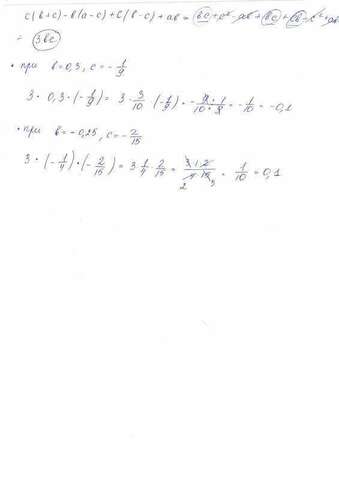 c(b+c)-b(a-c)+c(b-c)+ab= bc+c²-ab+bc+cb-c²+ab
= 3bc
• при b=0,3, c=-1/9
3·0,3·(-1/9)=3·3/10·(-1/9)=-9·1/10·9=-1/10=-0,1
• при b=-0,25, c=-2/15
3·(-1/4)·(-2/15)=3·1/4·2/15=3·1·2/4·15=1/10=0,1